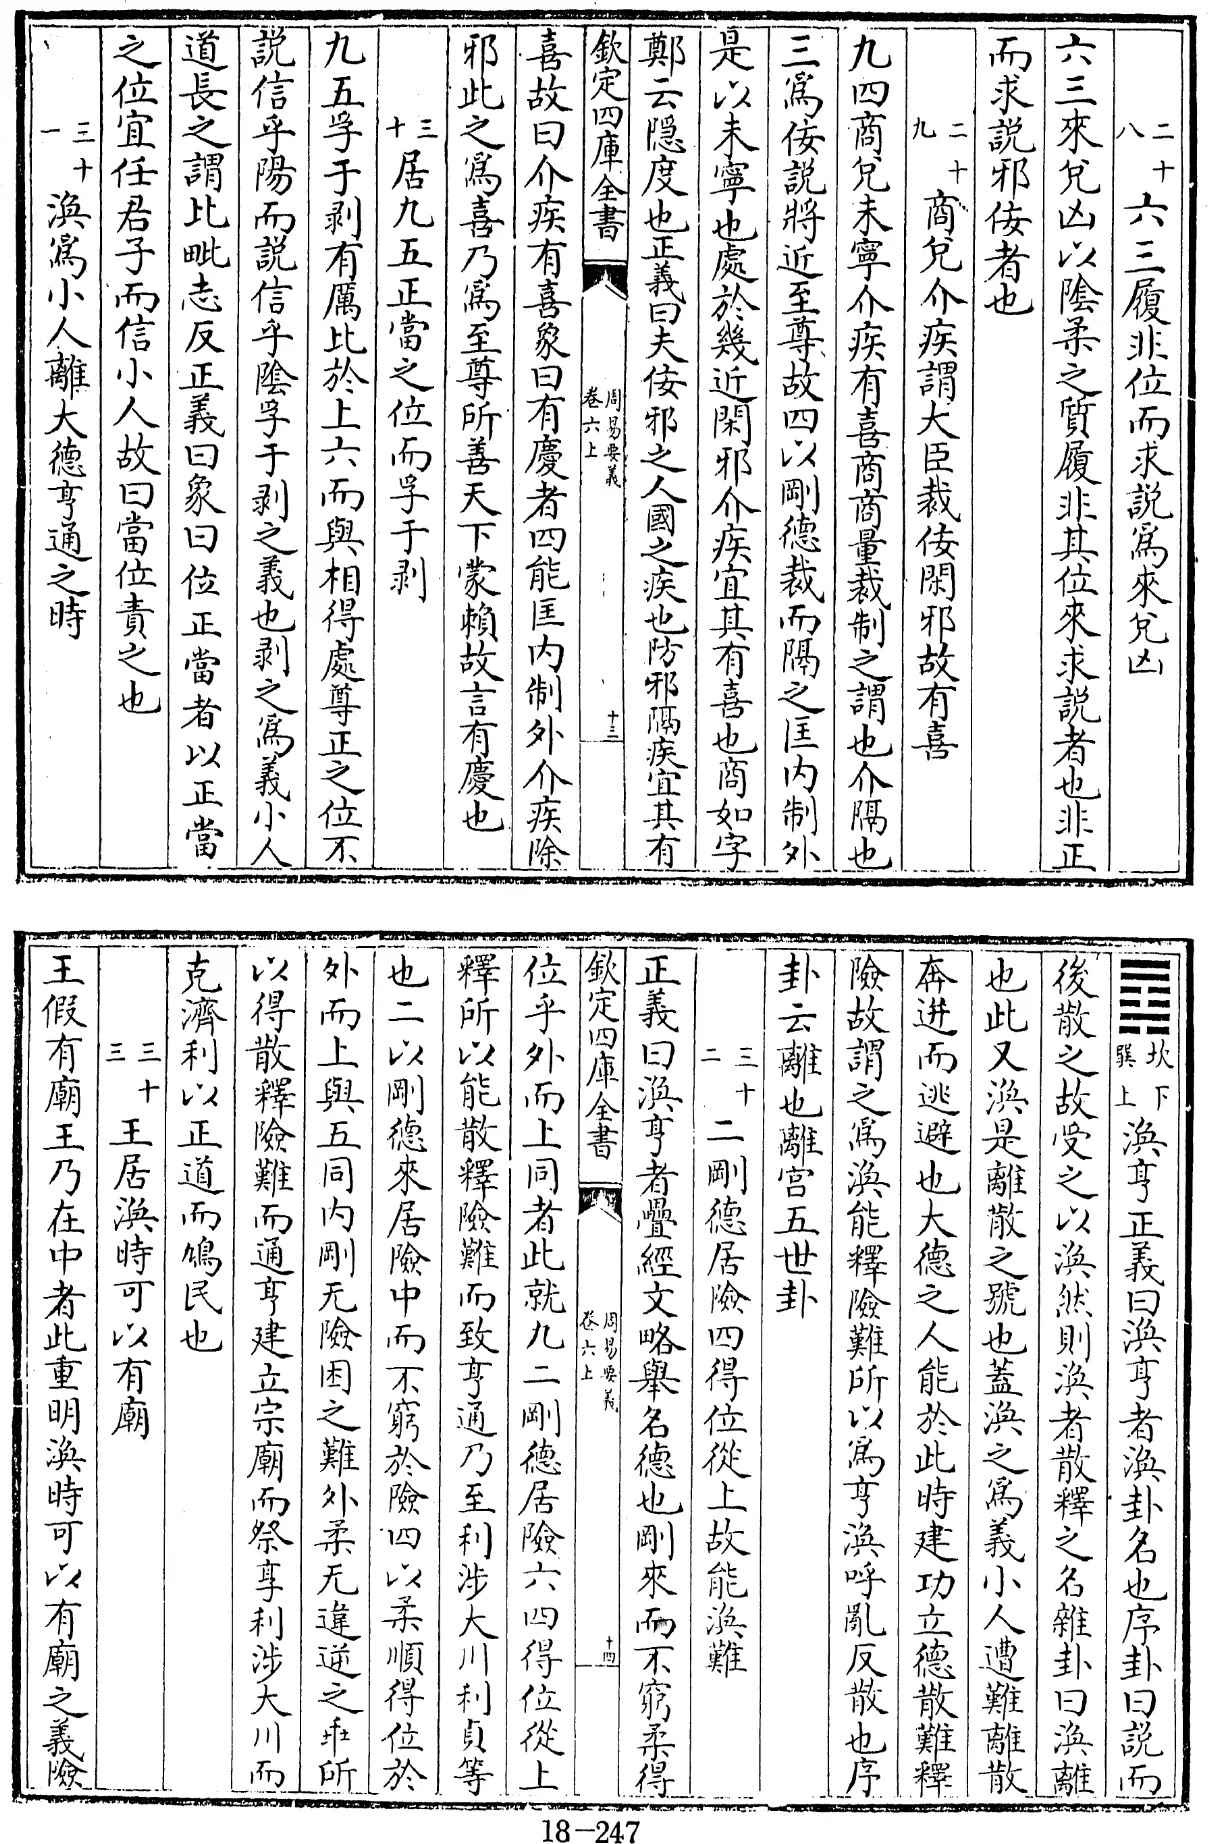 二十八 六三履非位而求説爲來兌凶
六三來兌凶以陰柔之質履非其位來求説者也非正
而求説邪佞者也
二十九 商兌介疾謂大臣裁佞閑邪故有喜
九四商兌未寧介疾有喜商商量裁制之謂也介隔也
三爲佞説將近至尊故四以剛德裁而隔之匡内制外
是以未寧也處於幾近閑邪介疾宜其有喜也商如字
鄭云隠度也正義曰夫佞邪之人國之疾也防邪隔疾宜其有
欽定四庫全書
周易要義
卷六上
十三
喜故曰介疾有喜象曰有慶者四能匡内制外介疾除
邪此之爲喜乃爲至尊所善天下蒙賴故言有慶也
三十 居九五正當之位而孚于剥
九五孚于剥有厲比於上六而與相得處尊正之位不
説信乎陽而説信乎陰孚于剥之義也剥之爲義小人
道長之謂比毗志反正義曰象曰位正當者以正當
之位宜任君子而信小人故曰當位責之也
三十一 渙爲小人離大德亨通之時
䷺
坎下
巽上
渙亨正義曰渙亨者渙卦名也序卦曰説而
後散之故受之以渙然則渙者散釋之名雜卦曰渙離
也此又渙是離散之號也蓋渙之爲義小人遭難離散
奔迸而逃避也大德之人能於此時建功立德散難釋
險故謂之爲渙能釋險難所以爲亨渙呼亂反散也序
卦云離也離宫五世卦
三十二 二剛德居險四得位從上故能渙難
正義曰渙亨者疊經文略舉名德也剛來而不窮柔得
欽定四庫全書
周易要義
卷六上
十四
位乎外而上同者此就九二剛德居險六四得位從上
釋所以能散釋險難而致亨通乃至利涉大川利貞等
也二以剛德來居險中而不窮於險四以柔順得位於
外而上與五同内剛无險困之難外柔无違逆之乖所
以得散釋險難而通亨建立宗廟而祭享利涉大川而
克濟利以正道而鳩民也
三十三 王居渙時可以有廟
王假有廟王乃在中者此重明渙時可以有廟之義險
18-247